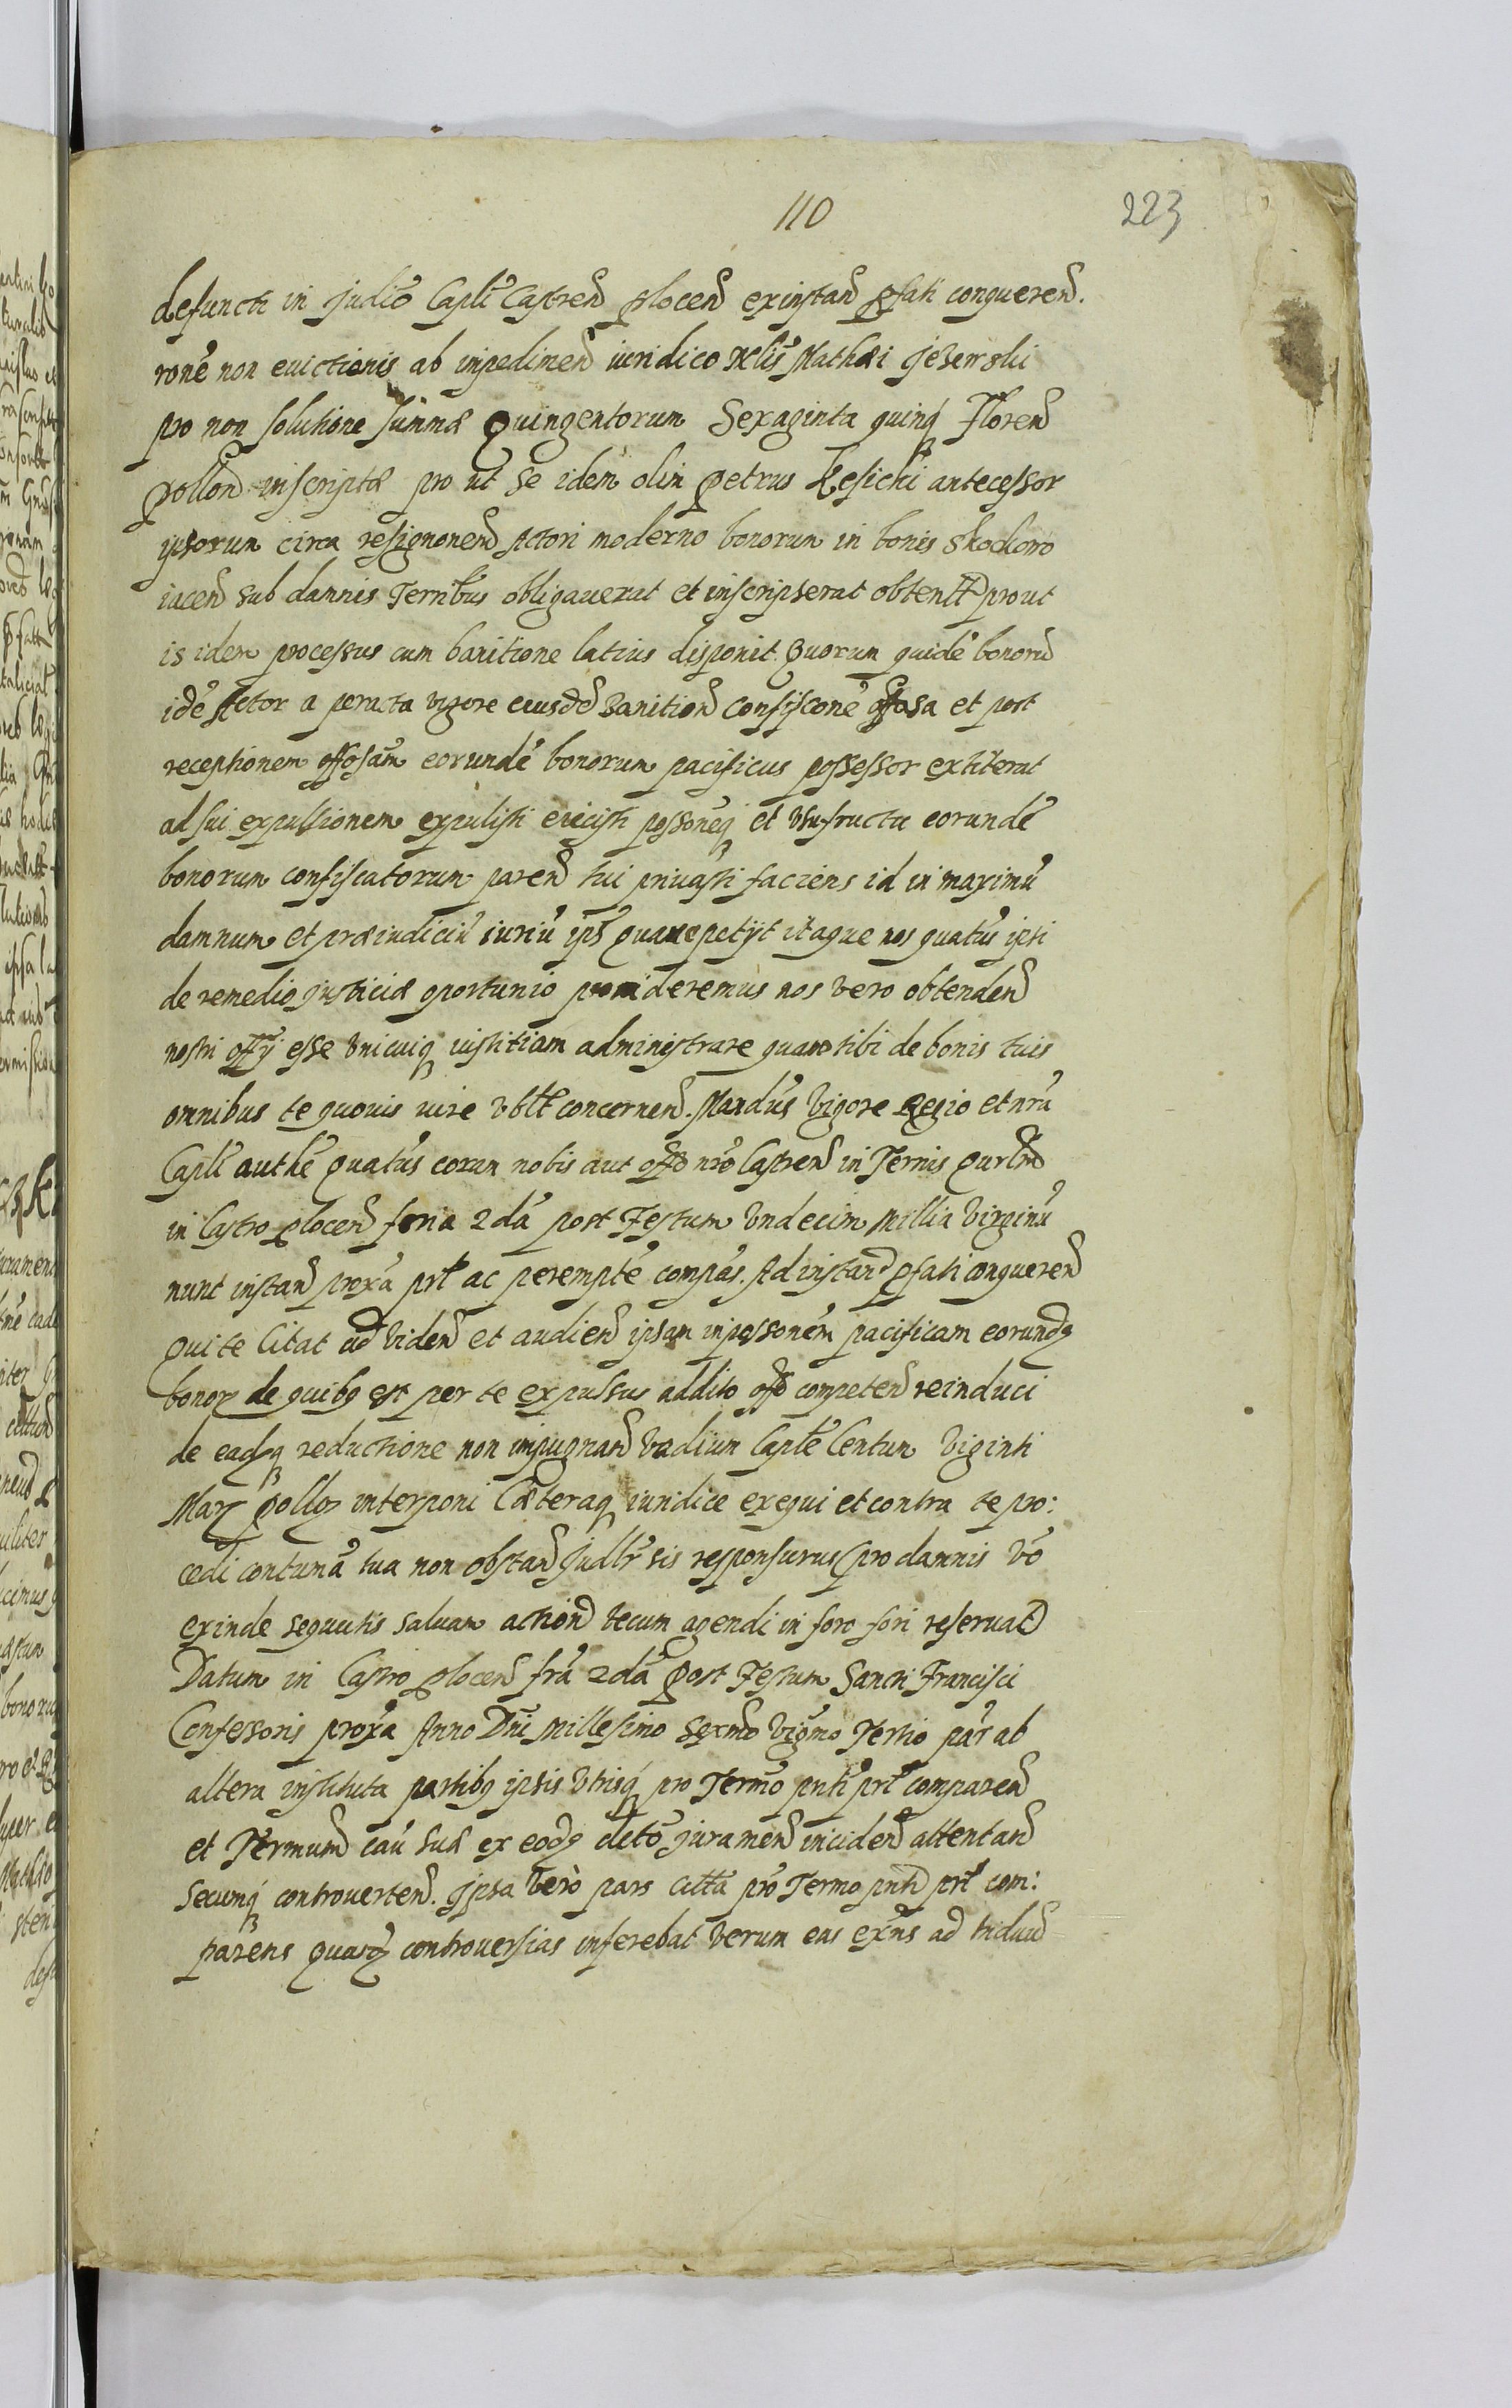 110
223
defuncti in Judio Capli Castren Plocen ex instan pfati conqueren.
rone non evictionis ab impedimen iuridico Nlis Mathæi Jezerski
pro non solutione summæ Quingentorum Sexaginta quinq Floren
pollon inscriptæ pro ut se idem olim Petrus Kesicki antecessor
ipsorum circa resignonen Actori moderno bonorum in bonis Skockoro
iacen sub damnis Terribus obligaverat et inscripserat obtent prout
is idem processus cum banitione latius disponit Quorum quide bonoru
ide Actor a peracta vigore eiusde Banition confiscone offosa et post
receptionem offosam eorunde bonorum pacificus possessor extiterat
ad sui expulsionem expulisti eiecisti possoneq et usufructu eorunde
bonorum confiscatorum paren tui privasti faciens id in maximu
damnum et præiudiciu iuriu ips quare petijt itaque nos quatus ipsi
de remedio justiciæ oportunio provideremus nos vero obtenden
nostri offij esse Unicuiq iustitiam administrare quare tibi de bonis tuis
omnibus te quovis iure Vblt concernen. Mandus Vigore Regio et nru
Capli authe Quatus coram nobis aut offo nro Castren in Ternis Qurlm
in Castro Plocen feria 2da post Festum Undecim Millia Virginu
nunt instan proxa prt ac perempte compas. Ad instan pfati conqueren
Qui te Citat ad Viden et audien ipsam in possonem pacificam eorundq
bonor de quibq est per te expulsus addito offo competen reinduci
de eadq reductione non impugnan Vadium Caple Centum Viginti
Mar pollo interponi Cæteraq iuridice exequi et contra te pro:
cedi contuma tua non obstan Judlr sis responsurus pro damnis Vo
exinde sequutis salvam action tecum agendi in foro fori reservat
Datum in Castro Plocen fra 2da Post Festum Sancti Francisci
Confessoris proxa Anno Dni Millesimo sexmo Vigmo Tertio pars ab
altera instituta partibq ipsis Utrisq pro Termo pnti prt comparen
et Termum cau suæ ex eodq dcto juramen inciden attentan
Secumq controverten. Ipsa Vero pars citta pro Termo pnti prt com:
parens quasq controversias inferebat Verum eas exns ad Induci